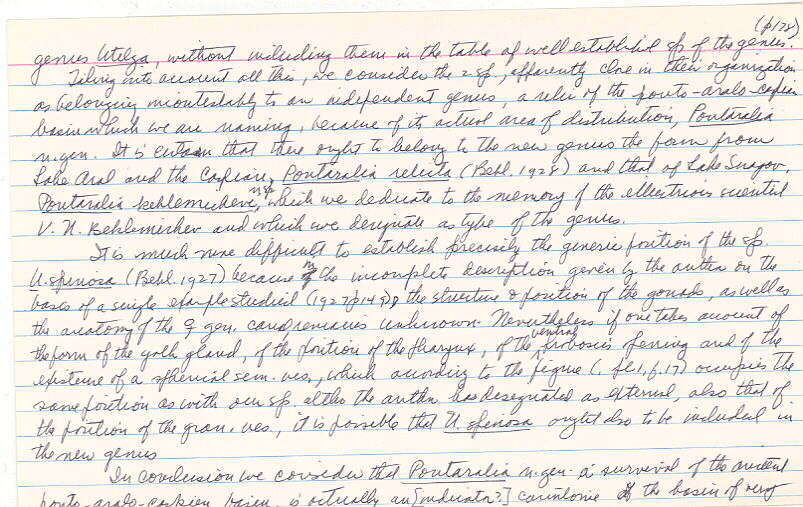 (p178)
genus Utelga, without including them in the table of well established sp of the genus.
Taking into account all this, we consider the 2 sp., apparently close in their organization
as belonging incontestably to an independent genus, a relic of the ponto-aralo-caspian
basin which we are naming, because of its actual area of distribution, Pontaralia
n.gen. It is certain that there ought to belong to the new genus the form from
Lake Aral and the Caspian, Pontaralia relicta (Bekl. 1928) and that of Lake Snagov,
Pontaralia beklemichevi, n.sp. which we dedicate to the memory of the illustrious scientist
V. N. Beklemichev and which we designate as type of the genus.
It is much more difficult to establish precisely the generic position of the sp.
U. spinosa (Bekl. 1927) because in the incomplete description given by the author on the
basis of a single example studied (1927 p149) the structure & position of the gonads, as well as
the anatomy of the ♀ gen. canal remains unknown. Nevertheless if one takes account of
the form of the yolk gland, of the position of the pharynx, of the ventral proboscis opening and of the
existence of a spherical sem. ves., which according to the figure (, pl 1, f. 17) occupies the
same position as with our sp. altho the author has designated as external, also that of
the position of the gran. ves., it is possible that U. spinosa ought also to be included in
the new genus
In conclusion we consider that Pontaralia n. gen. a survival of the ancient
ponto-aralo-caspien basin is actually an [indicator?] the basin of very